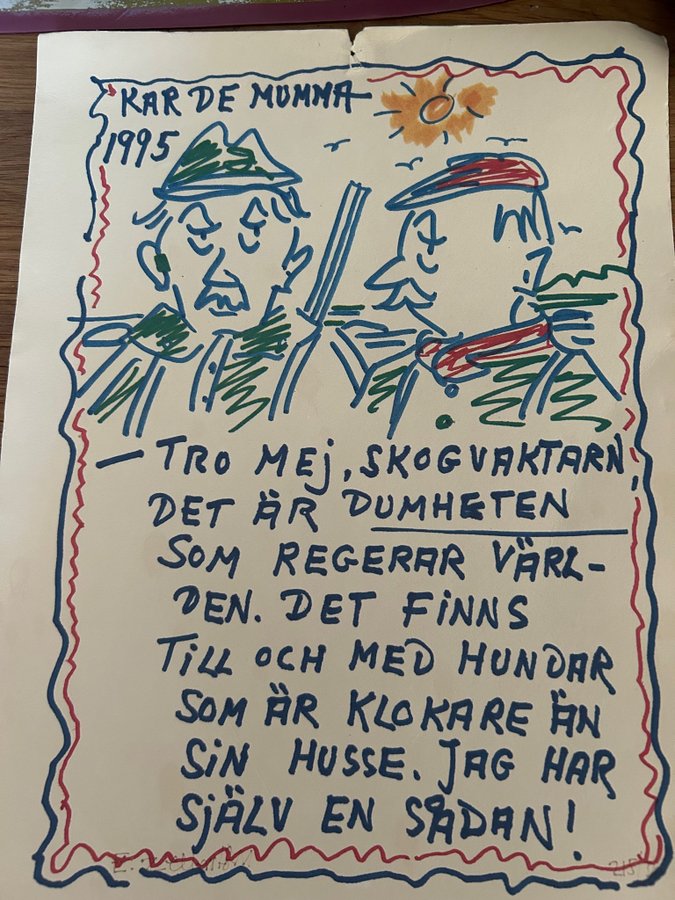 KAR DE MUMMA
1995
— TRO MEJ, SKOGVAKTARN,
DET ÄR DUMHETEN
SOM REGERAR VÄRL-
DEN. DET FINNS
TILL OCH MED HUNDAR
SOM ÄR KLOKARE ÄN
SIN HUSSE. JAG HAR
SJÄLV EN SÅDAN!